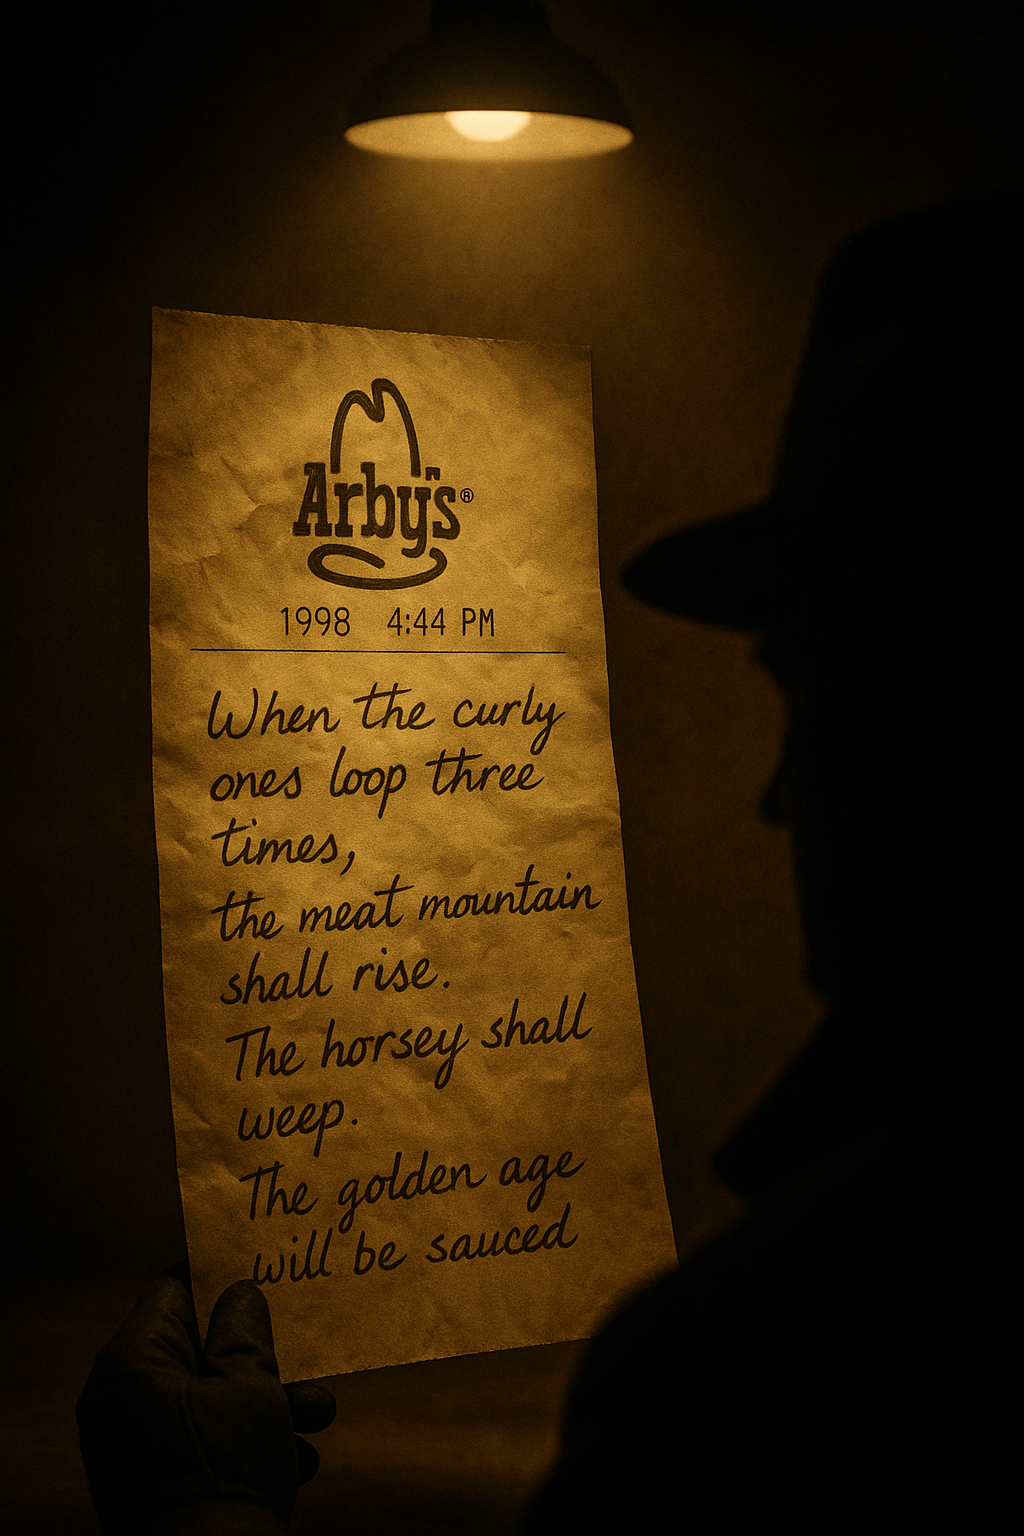 Arby's®
1998 4:44 PM
When the curly
ones loop three
times,
the meat mountain
shall rise.
The horsey shall
weep.
The golden age
will be sauced